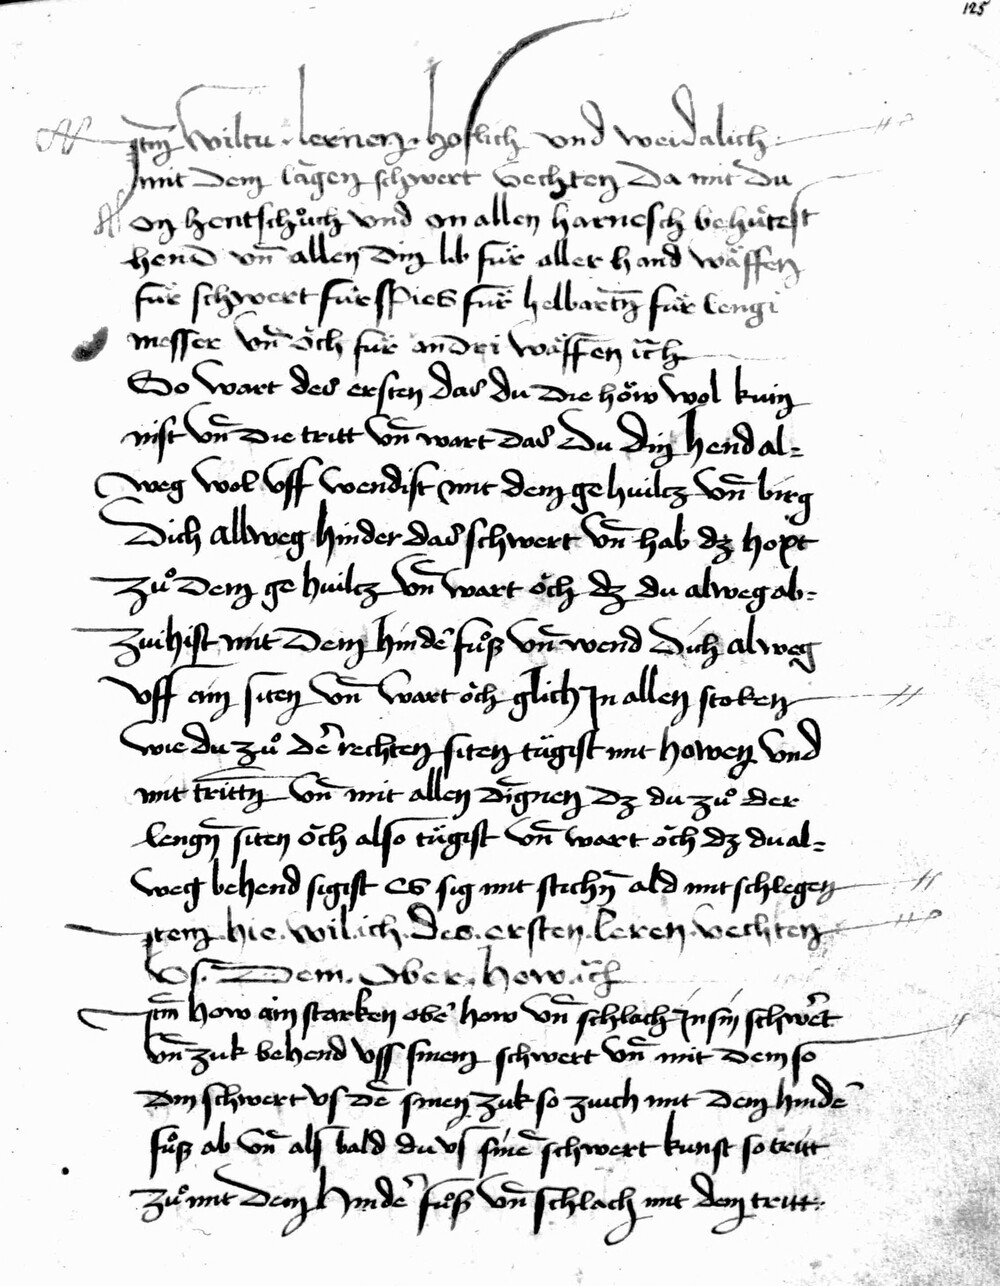 125
Itm̄ wiltu · lernen · hoflich und weidalich
mit dem langen schwert vechten da mit du
on hentschůch und on allen harnesch behůtest
hend vn̄ allen din lib fůr aller hand wäffen
fůr schwert fůr spies fůr helbartn̄ fůr lengi
messer vn̄ och fůr andri wäffen ich
So wart des ersten das du die höw wol kuin
nist vn̄ die tritt vn̄ wart das du din hend al=
weg wol uff wendist mit dem gehuilcz vn̄ birg
Dich allweg hinder das schwert vn̄ hab dz hopt
zů dem gehuilcz vn̄ wart öch dz du alweg ab=
zuihist mit dem hinde͛ fůß vn̄ wend dich alweg
uff ain siten vn̄ wart öch glich In allen stoken
wie du zů de͛ rechten siten tügist mit howen vnd
mit trittn̄ vn̄ mit allen dingnen dz du zů der
lengn̄ siten öch also tügist vn̄ wart öch dz du al=
weg behend sigist es sig mit stichn̄ ald mit schlegen
Item · hie · wil · ich · des · ersten · leren · vechten
Us · Dem · Ober · how · ich
Itm̄ how ain starken obe͛ how vn̄ schlach In sin schwe͛t
vn̄ zuk behend uss sinem schwert vn̄ mit dem so
din schwert us de͞ sinen zuk so zuich mit dem hinde͛
fůß ab vn̄ als bald du us sine͞ schwert kunst so tritt
zů mit dem hinde͛ fůß vn̄ schlach mit dem tritt